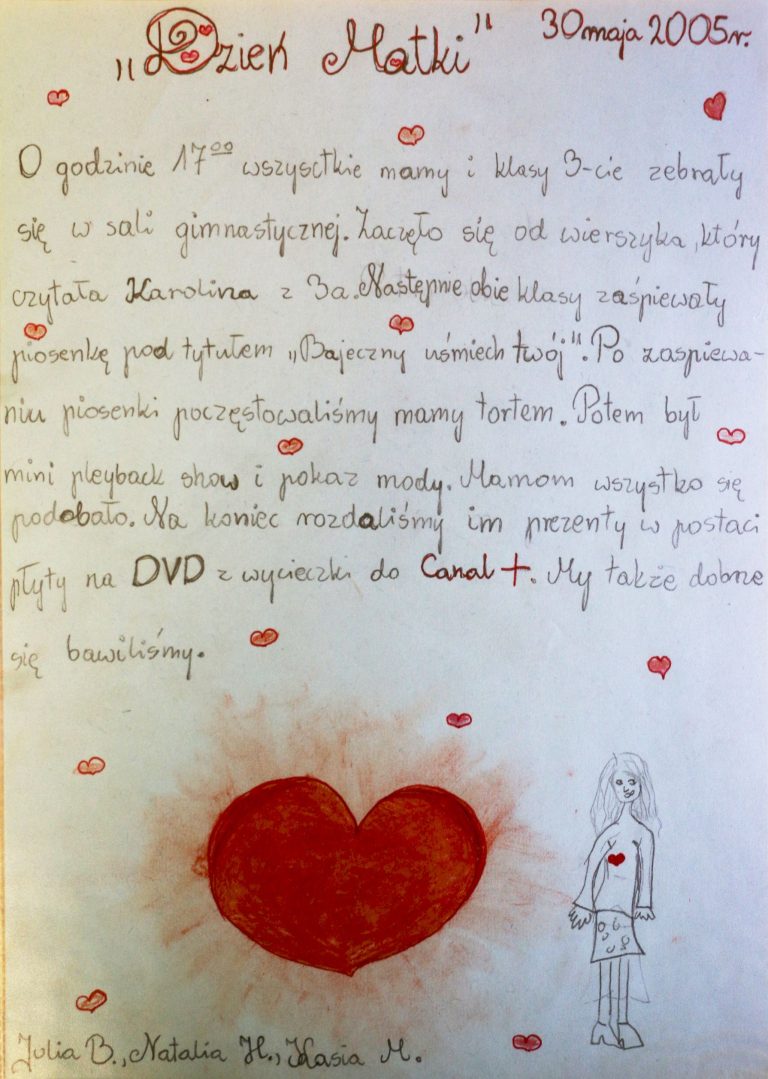 „Dzień Matki" 30 maja 2005r.
O godzinie 17⁰⁰ wszysctkie mamy i klasy 3-cie zebrały
się w sali gimnastycznej. Zaczęło się od wierszyka, który
czytała Karolina z 3a. Następnie obie klasy zaśpiewały
piosenkę pod tytułem „Bajeczny uśmiech twój". Po zaspiewa-
niu piosenki poczęstowaliśmy mamy tortem. Potem był
mini pleyback show i pokaz mody. Mamom wszystko się
podobało. Na koniec rozdaliśmy im prezenty w postaci
płyty na DVD z wycieczki do Canal+. My także dobrze
się bawiliśmy.
Julia B., Natalia H., Kasia M.